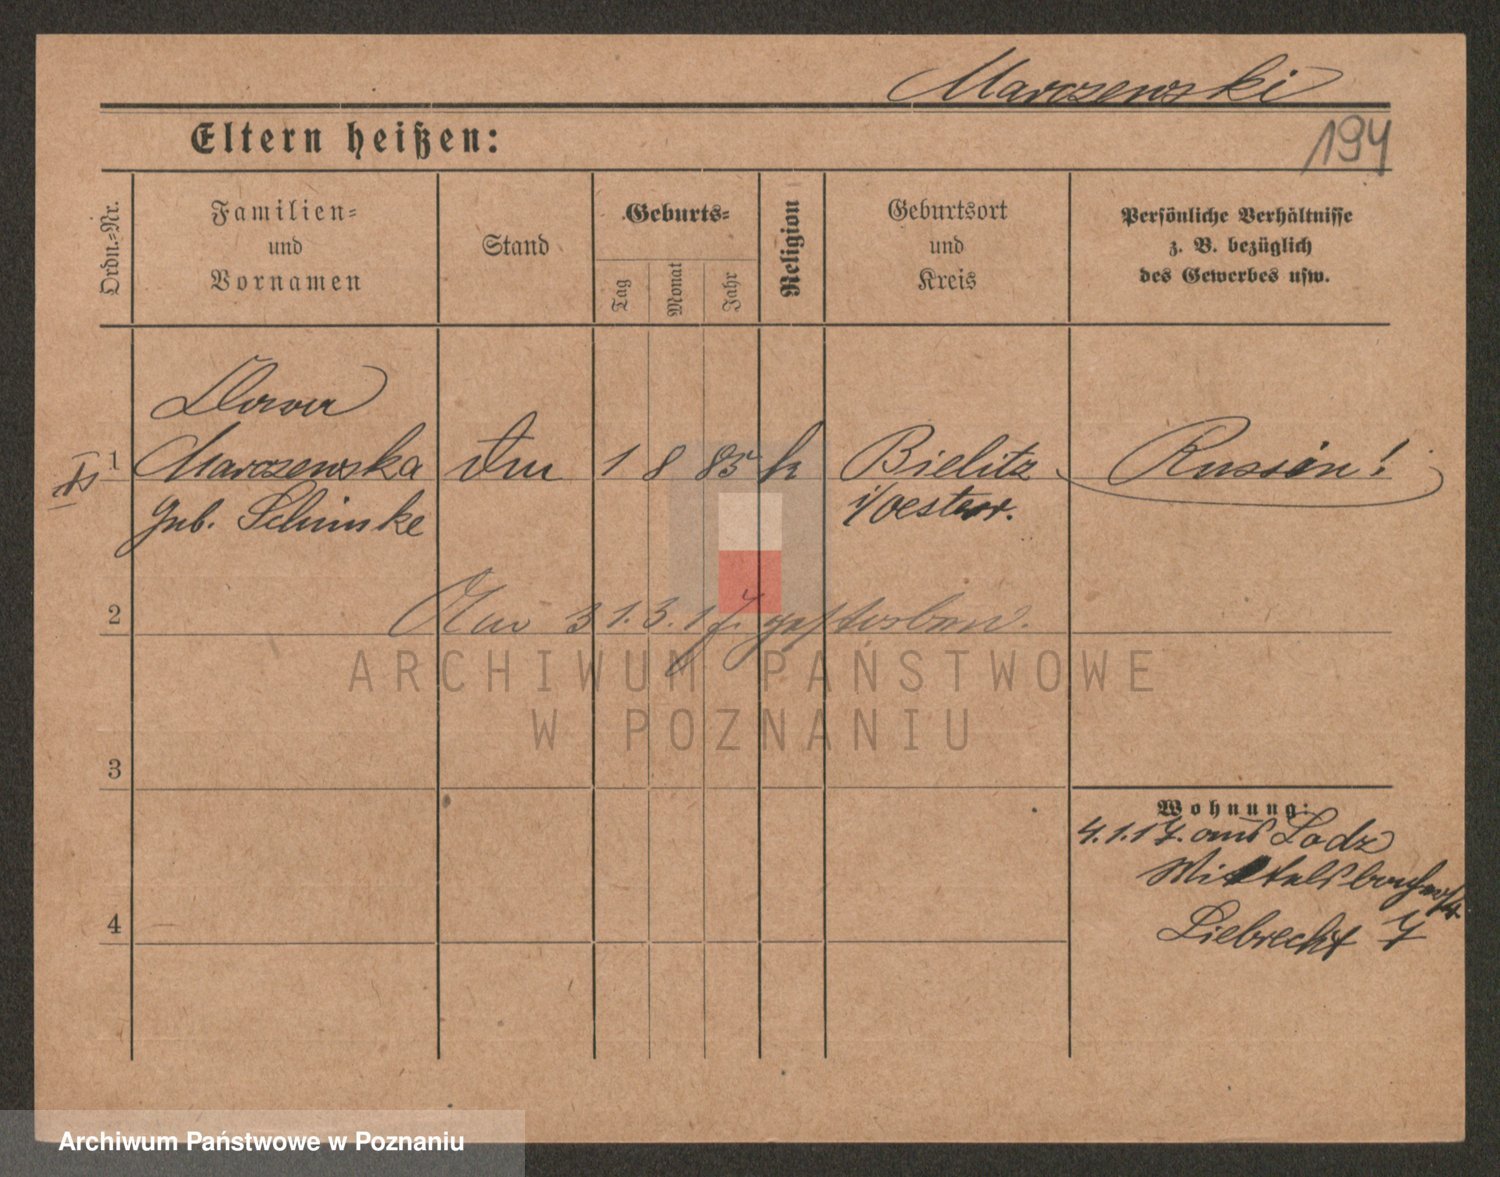 Marczewski
194
Eltern heißen:
Ordn.-Nr.
Familien-
und
Vornamen
Stand
Geburts-
Tag
Monat
Jahr
Religion
Geburtsort
und
Kreis
Persönliche Verhältnisse
z. B. bezüglich
des Gewerbes usw.
1 Marczewska 1 8 85 k Bielitz Russin!
geb. Schimske i/oesterr.
2 Am 31.3.17. gestorben.
3
Wohnung:
4.1.17. aus Lodz
Wittelsbacherstr.
4 Liebrecht 7
ARCHIWUM PAŃSTWOWE
W POZNANIU
Archiwum Państwowe w Poznaniu